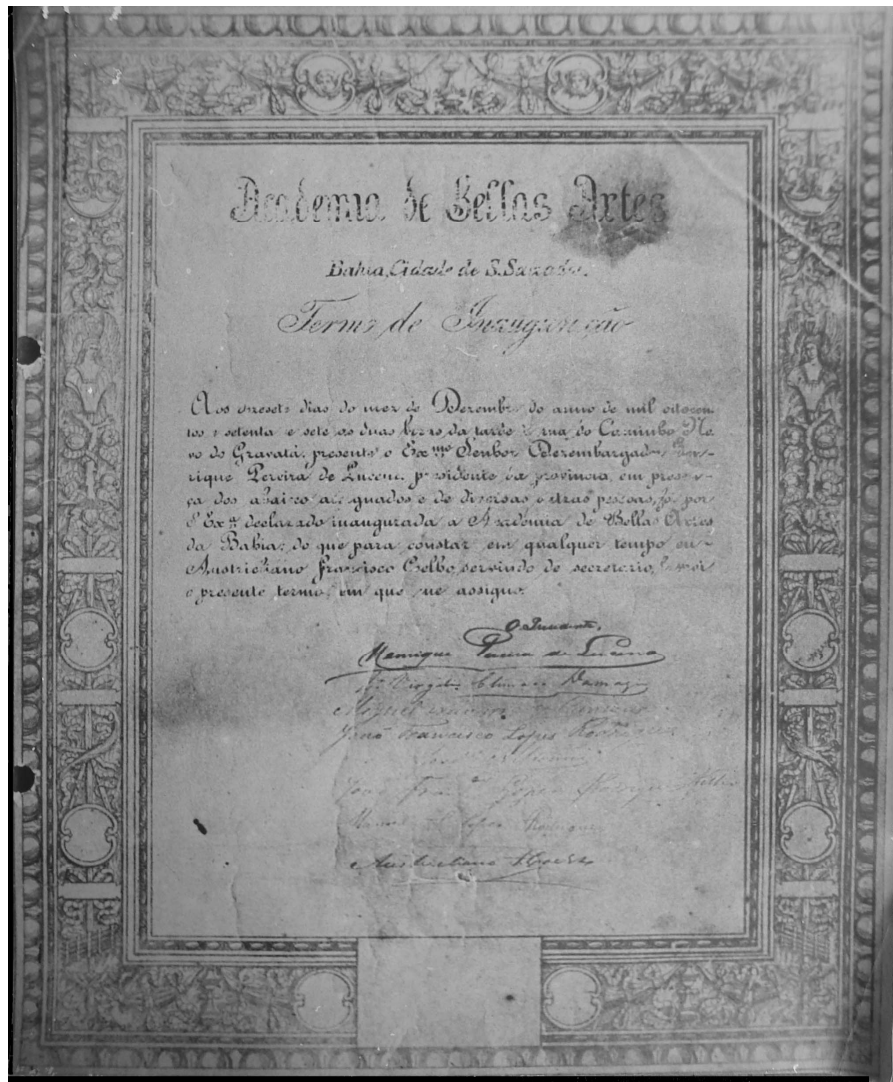 Academia de Bellas Artes
Bahia, Cidade de S. Salvador.
Termo de Inauguração
Aos desesete dias do mez de Dezembro do anno de mil oitocen-
tos e setenta e sete as duas horas da tarde á rua do Caminho No-
vo do Gravatá, presente o Exmo Senhor Dezembargador Hen-
rique Pereira de Lucena, presidente da provincia, em presen-
ça dos abaixo assignados e de diversas outras pessoas, foi por
S. Exa declarado inaugurada a Academia de Bellas Artes
da Bahia; do que para constar em qualquer tempo eu
Austricliano Francisco Coelho, servindo de secretario, lavrei
o presente termo, em que me assigno.
Henrique Pereira de Lucena
Virgilio Climaco Damazio
Miguel
João Francisco Lopes Rodrigues
João Lopes Rodrigues
Manoel Lopes Rodrigues
Austricliano Coelho